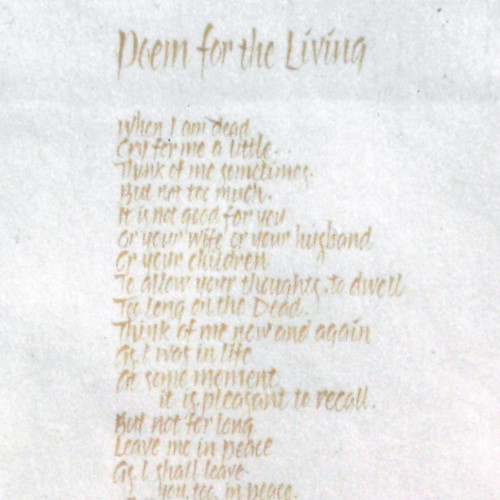 Poem for the Living
When I am dead
Cry for me a little.
Think of me sometimes.
But not too much.
It is not good for you
Or your wife or your husband
Or your children
To allow your thoughts to dwell
Too long on the Dead.
Think of me now and again
As I was in life
At some moment
it is pleasant to recall.
But not for long.
Leave me in peace
As I shall leave
you, too, in peace.